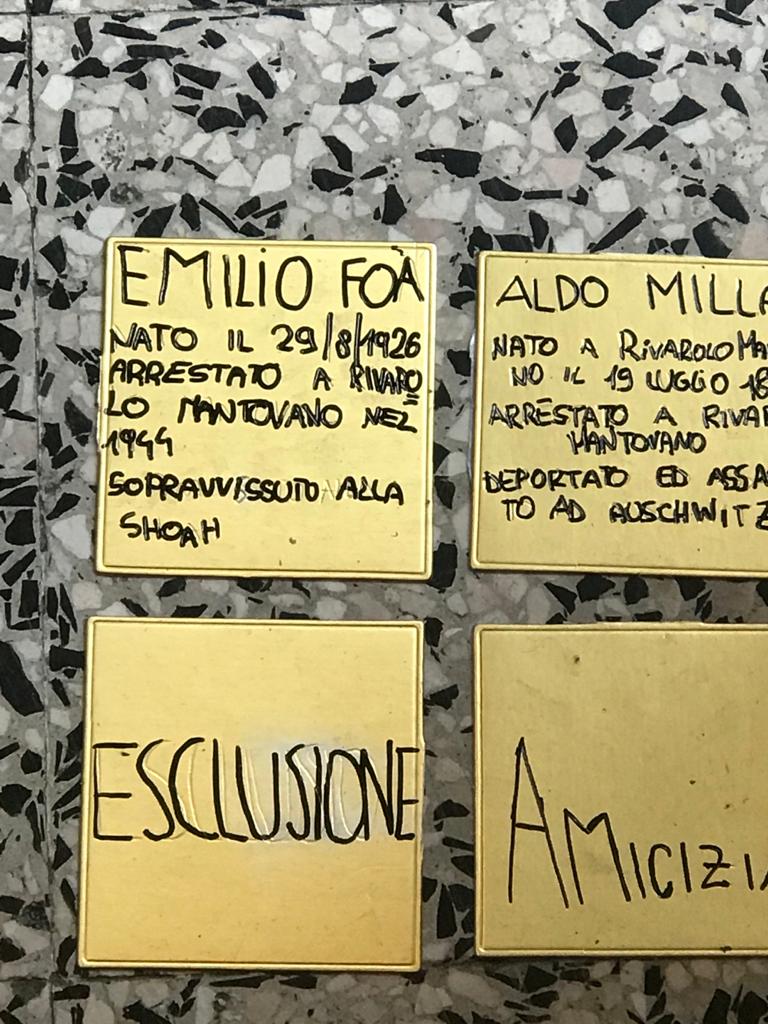 EMILIO FOÀ
NATO IL 29/8/1926
ARRESTATO A RIVARO
LO MANTOVANO NEL
1944
SOPRAVVISSUTO ALLA
SHOAH
ALDO MILLA
NATO A RIVAROLO MA
NO IL 19 LUGLIO 18
ARRESTATO A RIVAR
MANTOVANO
DEPORTATO ED ASSA
TO AD AUSCHWITZ
ESCLUSIONE
AMICIZIA